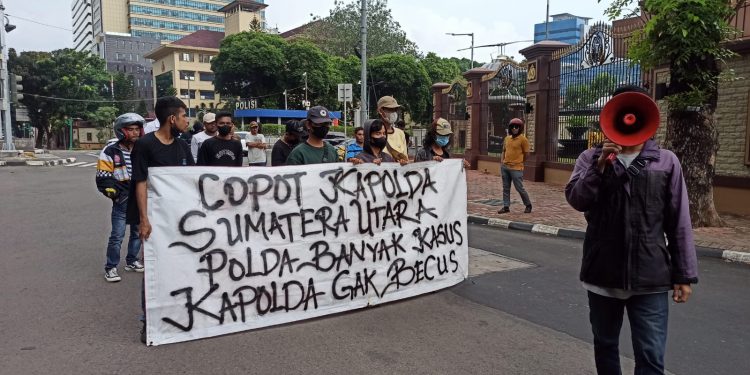 POLISI
COPOT KAPOLDA
SUMATERA UTARA
POLDA BANYAK KASUS
KAPOLDA GAK BECUS